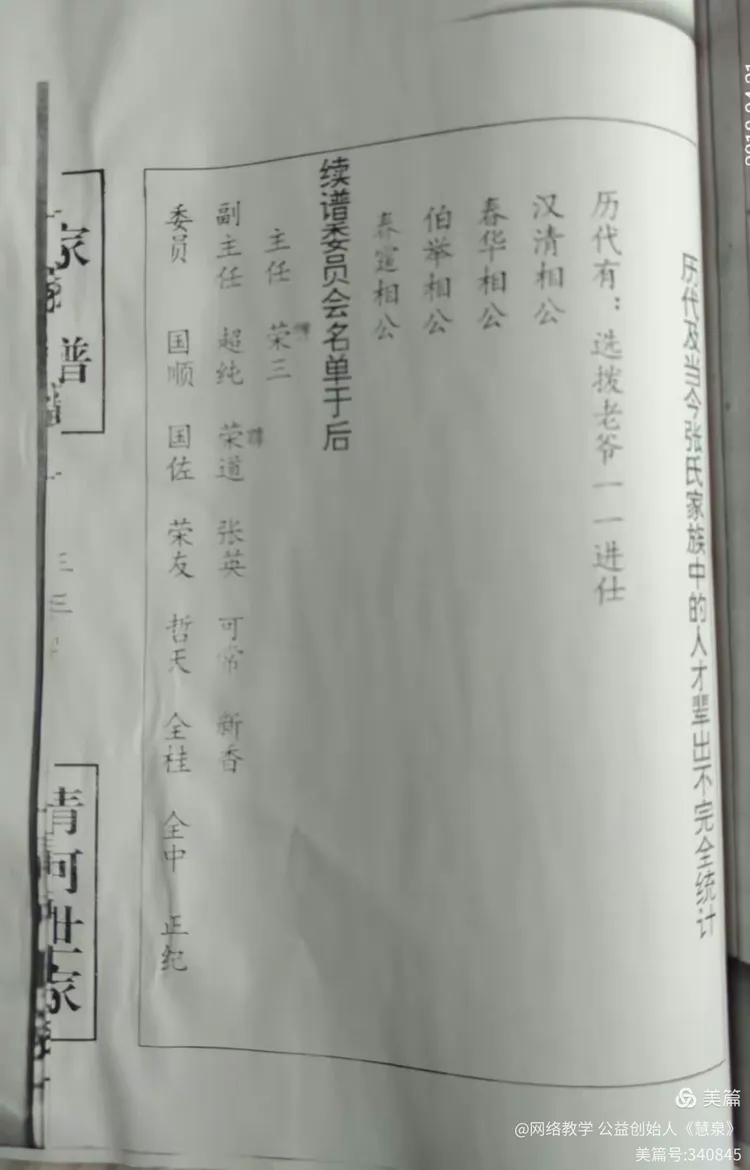 历代及当今张氏家族中的人才辈出不完全统计
历代有：选拨老爷一一进仕
汉清相公
春华相公
伯举相公
春萱相公
续谱委员会名单于后
主任 荣三
副主任 超纯 荣道 张英 可常 新香
委员 国顺 国佐 荣友 哲天 全桂 全中 正纪
家谱
清河世家
美篇
@网络教学 公益创始人《慧泉》
美篇号:340845